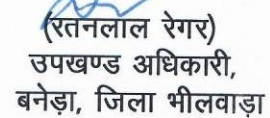 (रतनलाल रेगर)
उपखण्ड अधिकारी,
बनेड़ा, जिला भीलवाड़ा